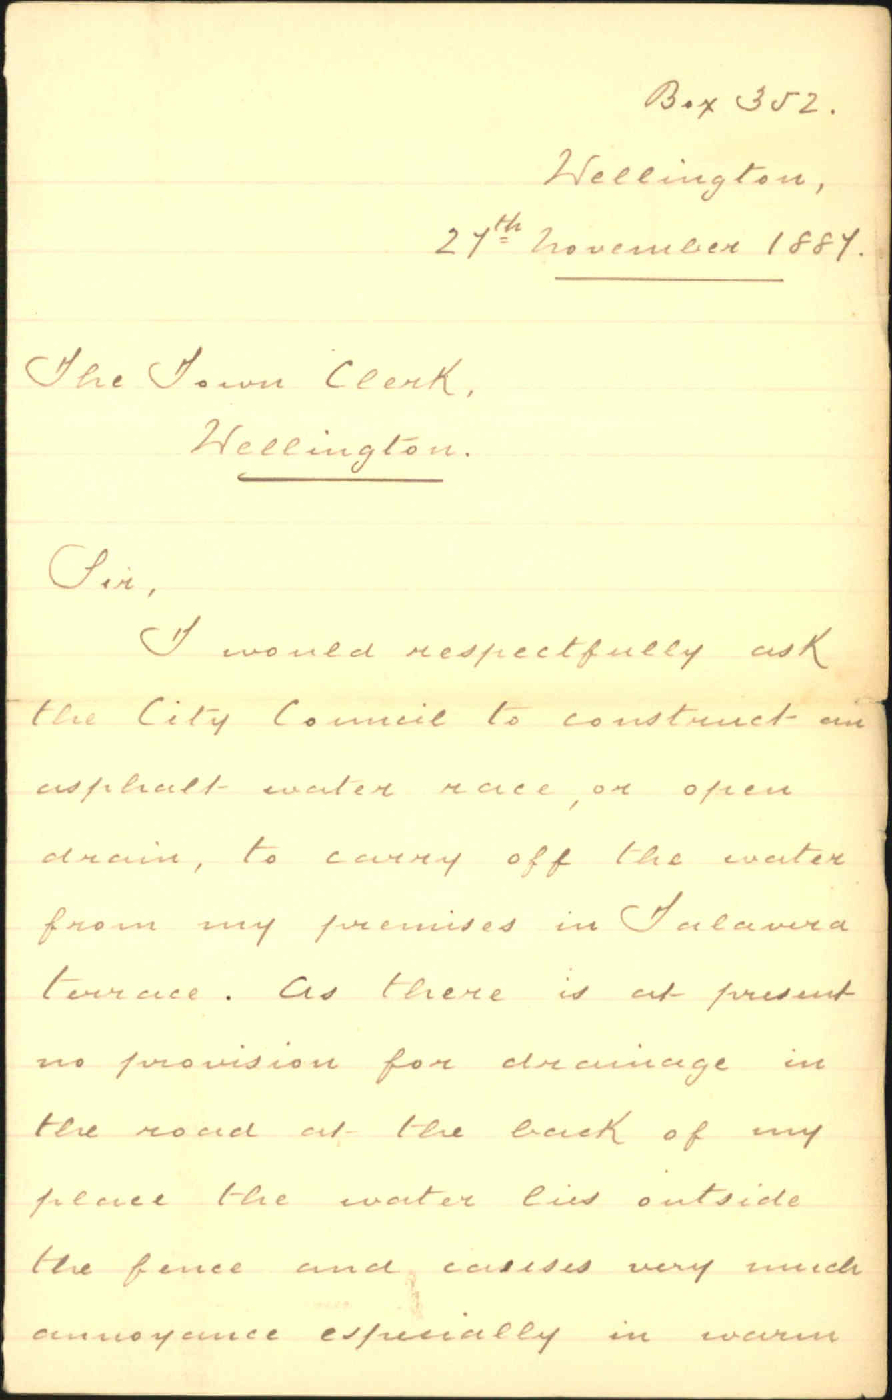 Box 352.
Wellington,
27th November 1887.
The Town Clerk,
Wellington.
Sir,
I would respectfully ask
the City Council to construct an
asphalt water race, or open
drain, to carry off the water
from my premises in Talavera
terrace. As there is at present
no provision for drainage in
the road at the back of my
place the water lies outside
the fence and causes very much
annoyance especially in warm